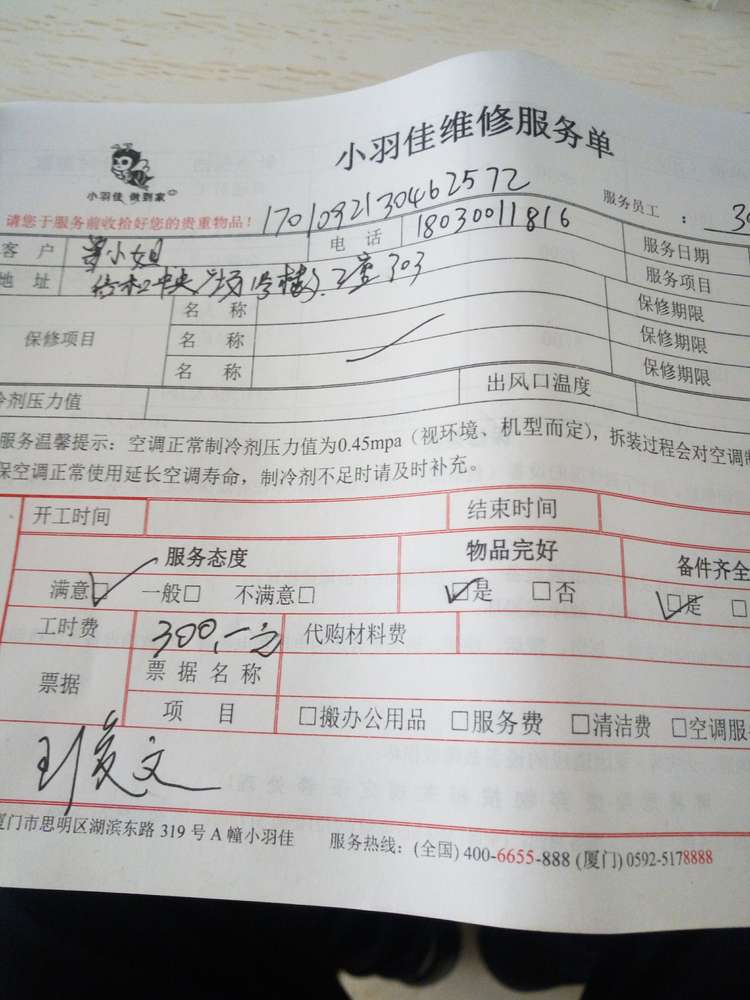 小羽佳维修服务单
小羽佳 做到家
请您于服务前收拾好您的贵重物品！ 1701092130462572 服务员工 ：
客 户 小姐 电 话 18030011816 服务日期
地 址 中央广场1号楼 303 服务项目
保修项目 名 称 保修期限
名 称 保修期限
名 称 保修期限
冷剂压力值 出风口温度
服务温馨提示：空调正常制冷剂压力值为0.45mpa（视环境、机型而定），拆装过程会对空调制
保空调正常使用延长空调寿命，制冷剂不足时请及时补充。
开工时间 结束时间
服务态度 物品完好 备件齐全
满意□ 一般□ 不满意□ □是 □否 □是 □
工时费 300.一元 代购材料费
票据 票 据 名 称
项 目 □搬办公用品 □服务费 □清洁费 □空调服
厦门市思明区湖滨东路 319 号 A 幢小羽佳 服务热线：(全国) 400-6655-888 (厦门) 0592-5178888